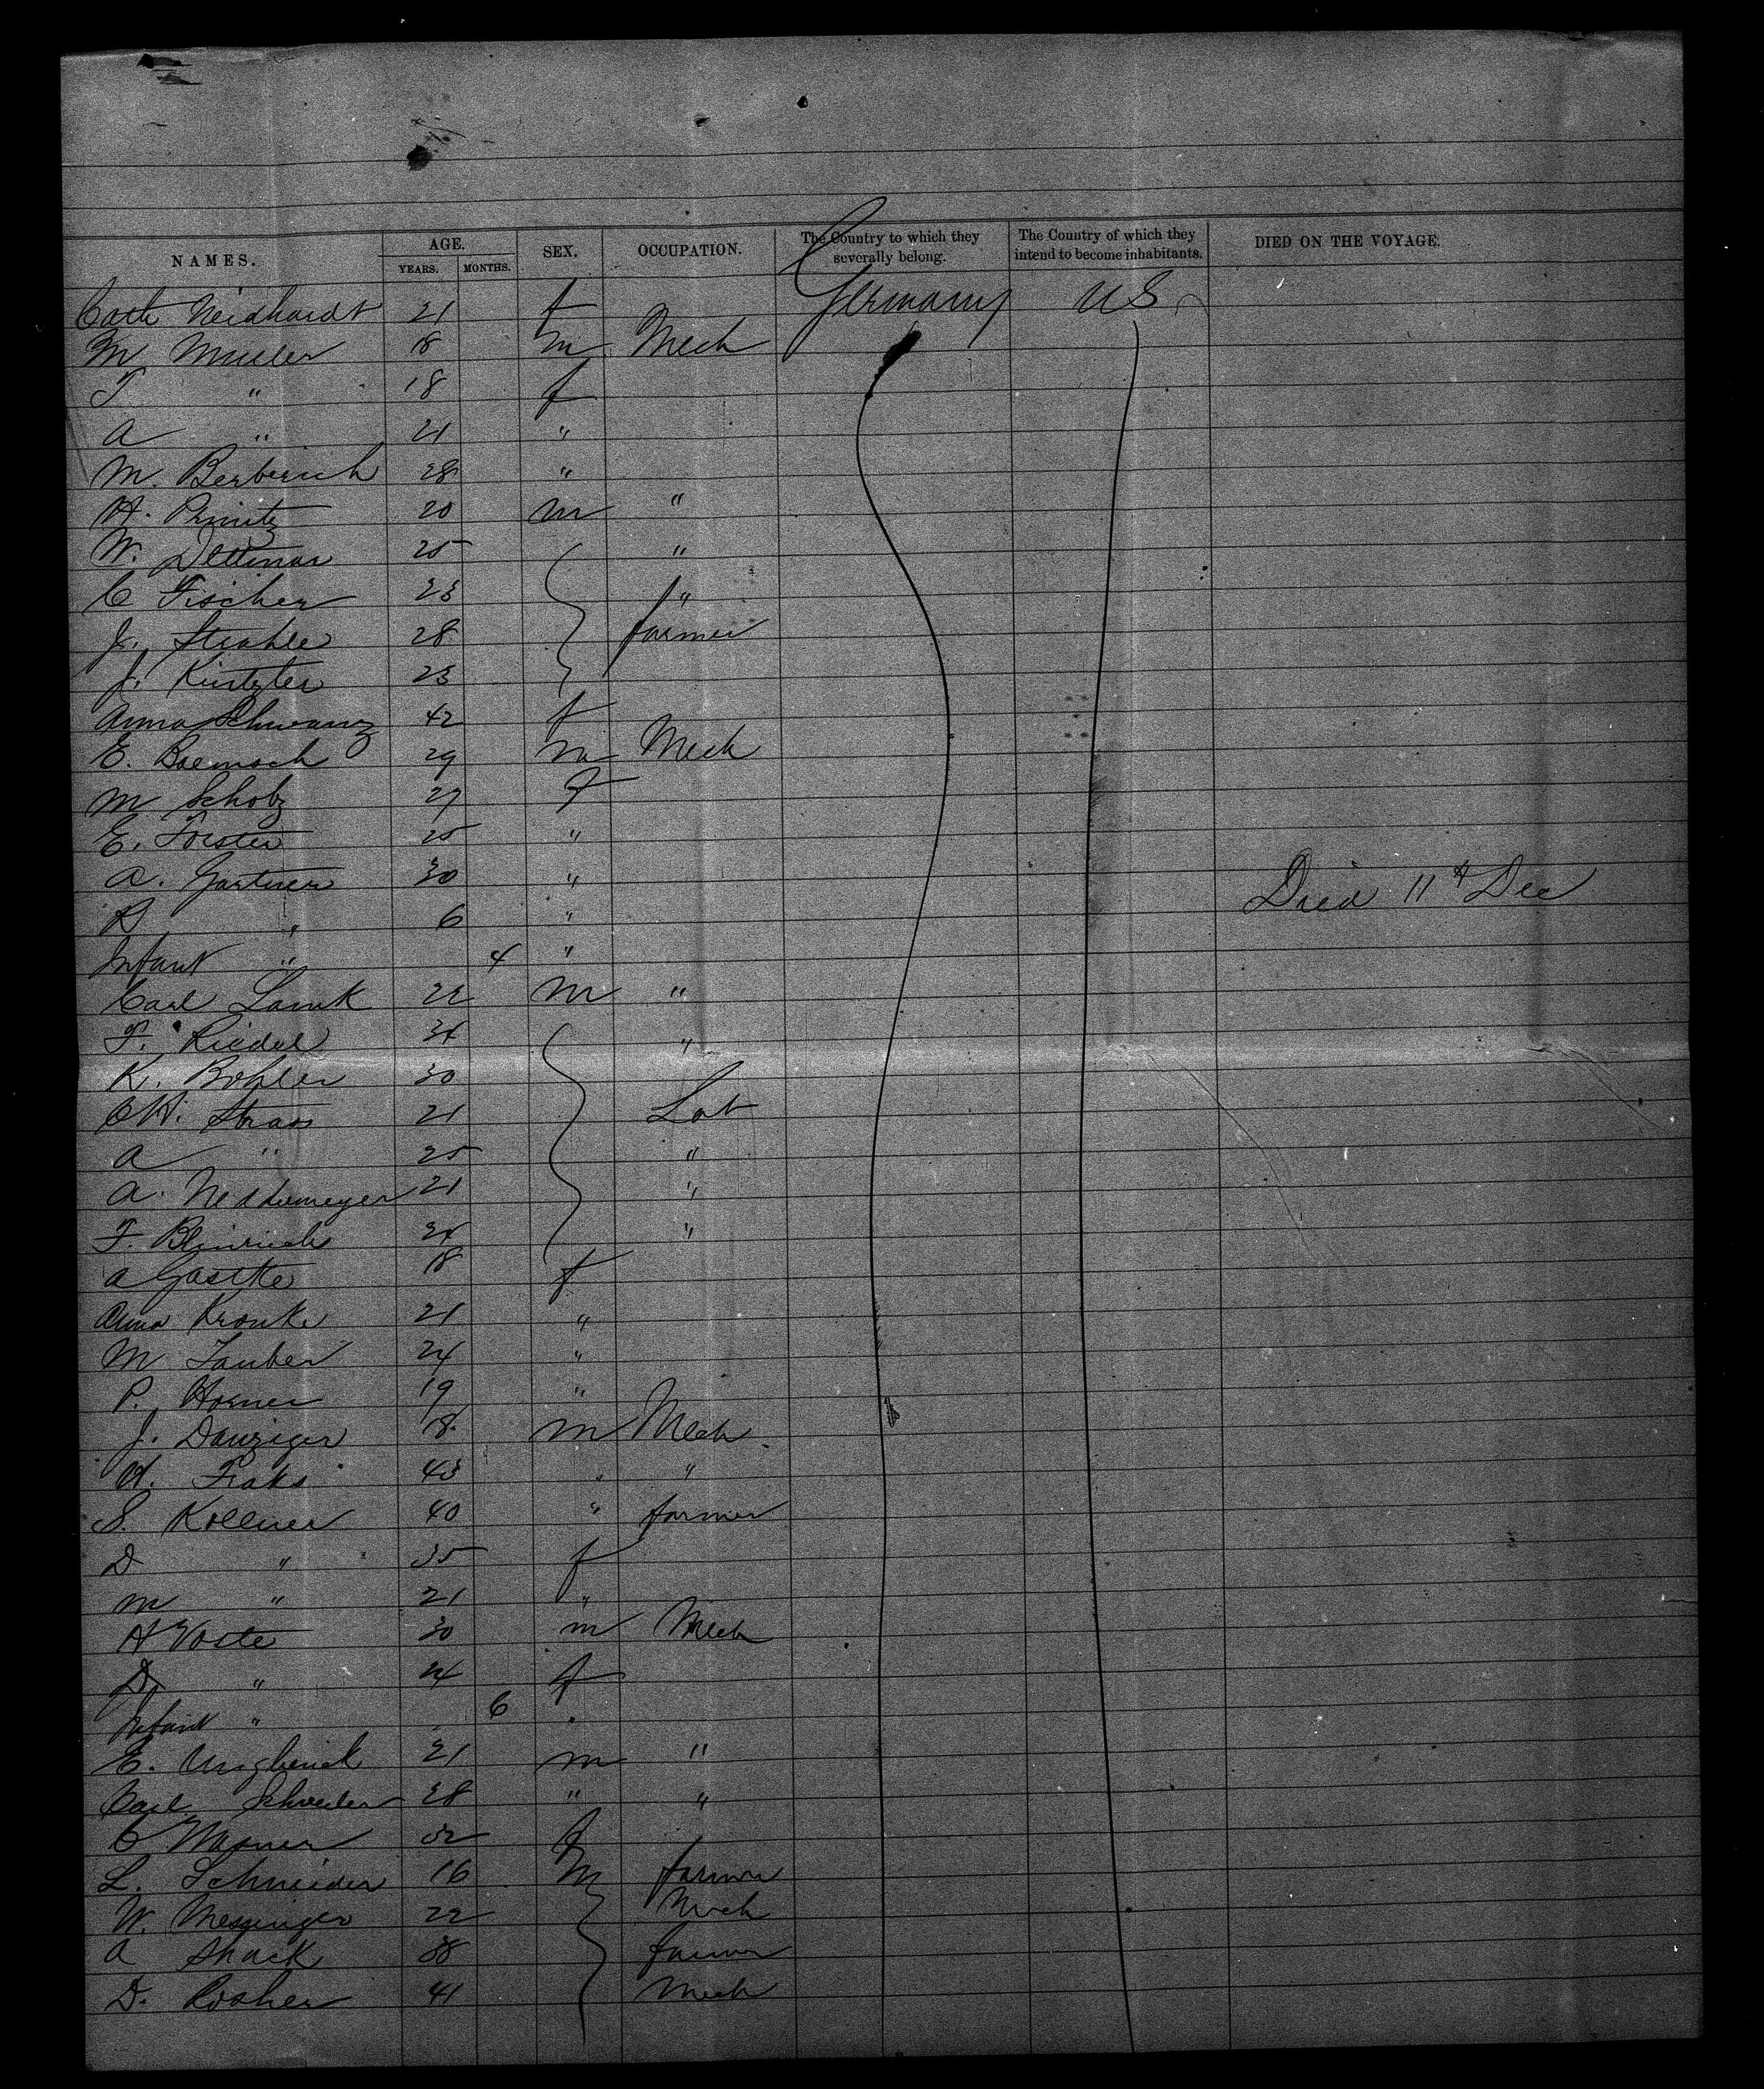 NAMES. AGE. YEARS. MONTHS. SEX. OCCUPATION. The Country to which they severally belong. The Country of which they intend to become inhabitants. DIED ON THE VOYAGE.
Cath Neidhardt 21 f Germany US
M Muller 18 m Mech
T " 18 f
A " 21 "
M. Berberich 28 "
H. Prinitz 20 m "
W. Dettmar 25 "
C Fischer 23 "
J. Strahle 28 farmer
J. 23
Anna Schwanz 42 f
E. 29 m Mech
M Scholz 27 f
E. Forster 25 "
A. Gartner 30 "
B " 6 " Died 11th Dec
Infant " 4 "
Carl Lamk 22 m "
F. Riedel 34 "
K. Bohler 30
CH. Strass 21 Lab
A " 25 "
A. 21 "
F. 34 "
A Gastke 18 f
Anna Kronke 21 "
M Tauber 24 "
P. Horner 19 "
J. Danziger 18 m Mech
H. Fraks 43 " "
S. Kollner 40 " farmer
D " 35 f
M " 21 "
H Voste 30 m Mech
D " 24 f
Infant " 6 "
E. 21 m "
Carl 28 " "
C Wasner 32 f
L. Schneider 16 m farmer
W. Messinger 22 Mech
A Shack 38 farmer
D. Rosher 41 Mech